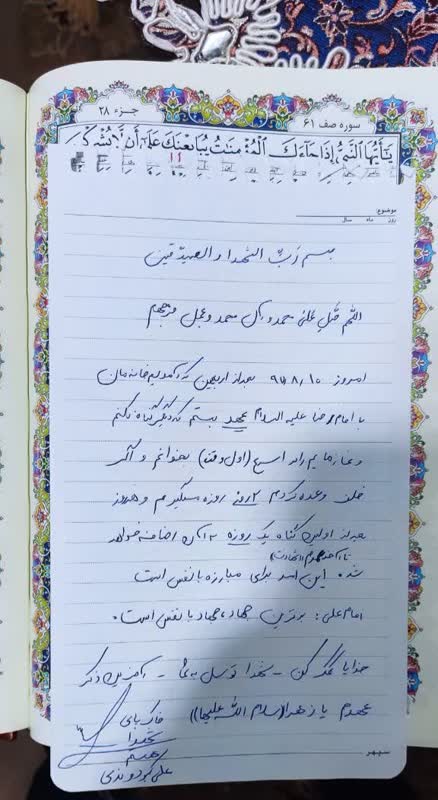 سوره صف ۶۱
جزء ۲۸
يَـٰٓأَيُّهَا ٱلنَّبِىُّ إِذَا جَآءَكَ ٱلْمُؤْمِنَـٰتُ يُبَايِعْنَكَ عَلَىٰٓ أَن لَّا يُشْرِكْ
موضوع:
روز ماه سال
بسم رب الشهدا و الصدیقین
اللهم صل علی محمد و آل محمد و عجل فرجهم
امروز ۹۷/۸/۱۰ بعد از اربعین که آمدیم خانه مان
با امام رضا علیه السلام عهد بستم که دیگر گناه نکنم
و نماز هایم را سریع (اول وقت) بخوانم و اگر
خلف وعده کردم ۲ روز روزه میگیرم و هر روز
بعد از اولین گناه یک روزه به آن اضافه خواهد
شد. این امر برای مبارزه با نفس است
امام علی: برترین جهاد، جهاد با نفس است.
خدایا کمک کن - شهدا توسل به شما -
عهدم یا زهرا (سلام الله علیها))
خاک پای
شهدا
علی
سپهر